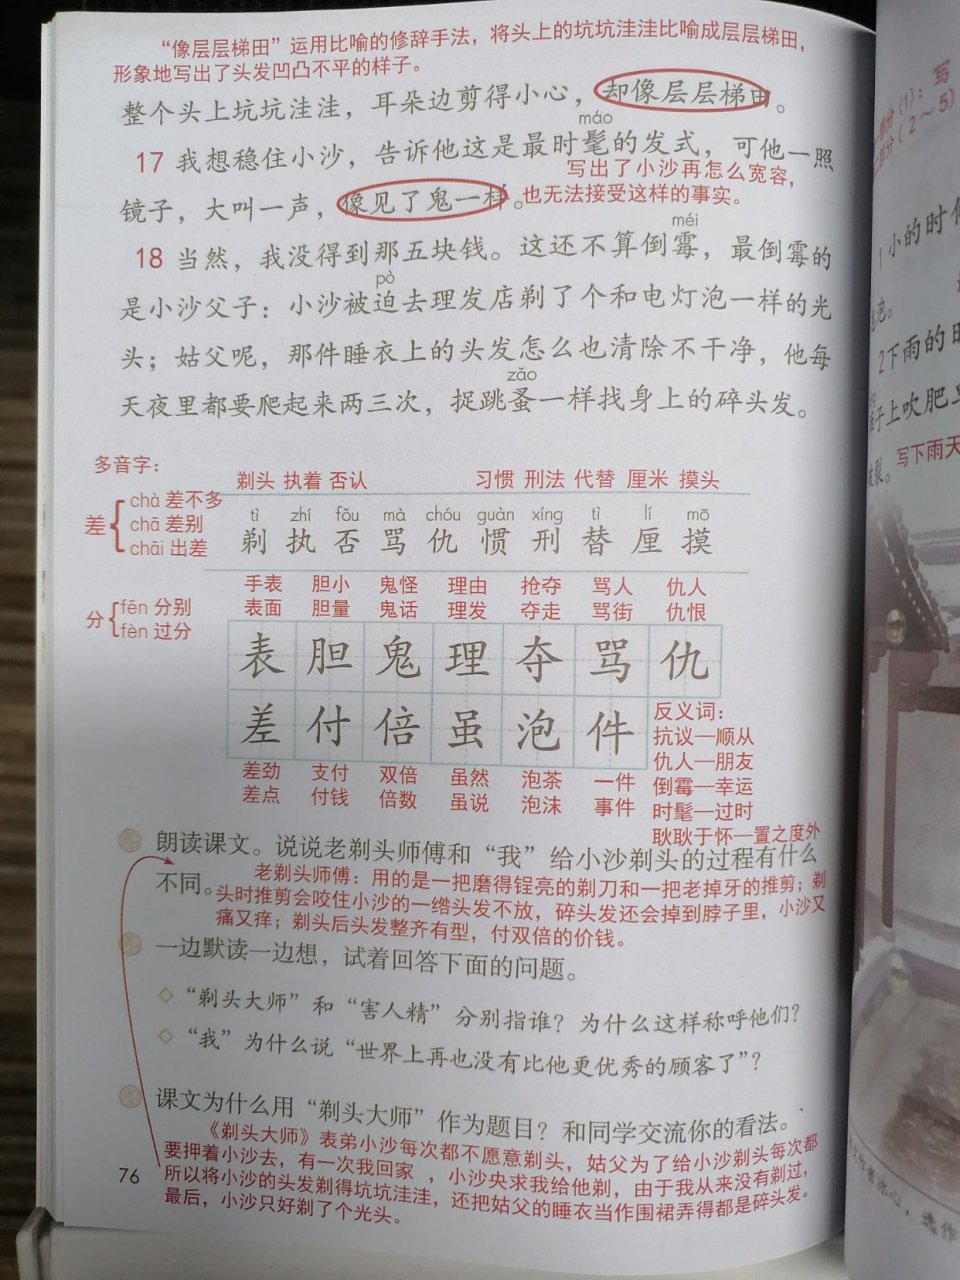 “像层层梯田”运用比喻的修辞手法，将头上的坑坑洼洼比喻成层层梯田，
形象地写出了头发凹凸不平的样子。
整个头上坑坑洼洼，耳朵边剪得小心，却像层层梯田。
máo
17 我想稳住小沙，告诉他这是最时髦的发式，可他一照
写出了小沙再怎么宽容，
镜子，大叫一声，像见了鬼一样。
也无法接受这样的事实。
méi
18 当然，我没得到那五块钱。这还不算倒霉，最倒霉的
pò
是小沙父子：小沙被迫去理发店剃了个和电灯泡一样的光
头；姑父呢，那件睡衣上的头发怎么也清除不干净，他每
zǎo
天夜里都要爬起来两三次，捉跳蚤一样找身上的碎头发。
多音字：
差 chà 差不多
chā 差别
chāi 出差
分 fēn 分别
fèn 过分
剃头 执着 否认 习惯 刑法 代替 厘米 摸头
tì zhí fǒu mà chóu guàn xíng tì lí mō
剃 执 否 骂 仇 惯 刑 替 厘 摸
手表 胆小 鬼怪 理由 抢夺 骂人 仇人
表面 胆量 鬼话 理发 夺走 骂街 仇恨
表 胆 鬼 理 夺 骂 仇
差 付 倍 虽 泡 件
差劲 支付 双倍 虽然 泡茶 一件
差点 付钱 倍数 虽说 泡沫 事件
反义词：
抗议—顺从
仇人—朋友
倒霉—幸运
时髦—过时
耿耿于怀—置之度外
朗读课文。说说老剃头师傅和“我”给小沙剃头的过程有什么
不同。
老剃头师傅：用的是一把磨得锃亮的剃刀和一把老掉牙的推剪；剃
头时推剪会咬住小沙的一绺头发不放，碎头发还会掉到脖子里，小沙又
痛又痒；剃头后头发整齐有型，付双倍的价钱。
一边默读一边想，试着回答下面的问题。
◇“剃头大师”和“害人精”分别指谁？为什么这样称呼他们？
◇“我”为什么说“世界上再也没有比他更优秀的顾客了”？
课文为什么用“剃头大师”作为题目？和同学交流你的看法。
《剃头大师》表弟小沙每次都不愿意剃头，姑父为了给小沙剃头每次都
要押着小沙去，有一次我回家，小沙央求我给他剃，由于我从来没有剃过，
所以将小沙的头发剃得坑坑洼洼，还把姑父的睡衣当作围裙弄得都是碎头发。
最后，小沙只好剃了个光头。
76
写
1 小的时
泡。
2 下雨的
子上吹肥
裂。
写下雨天